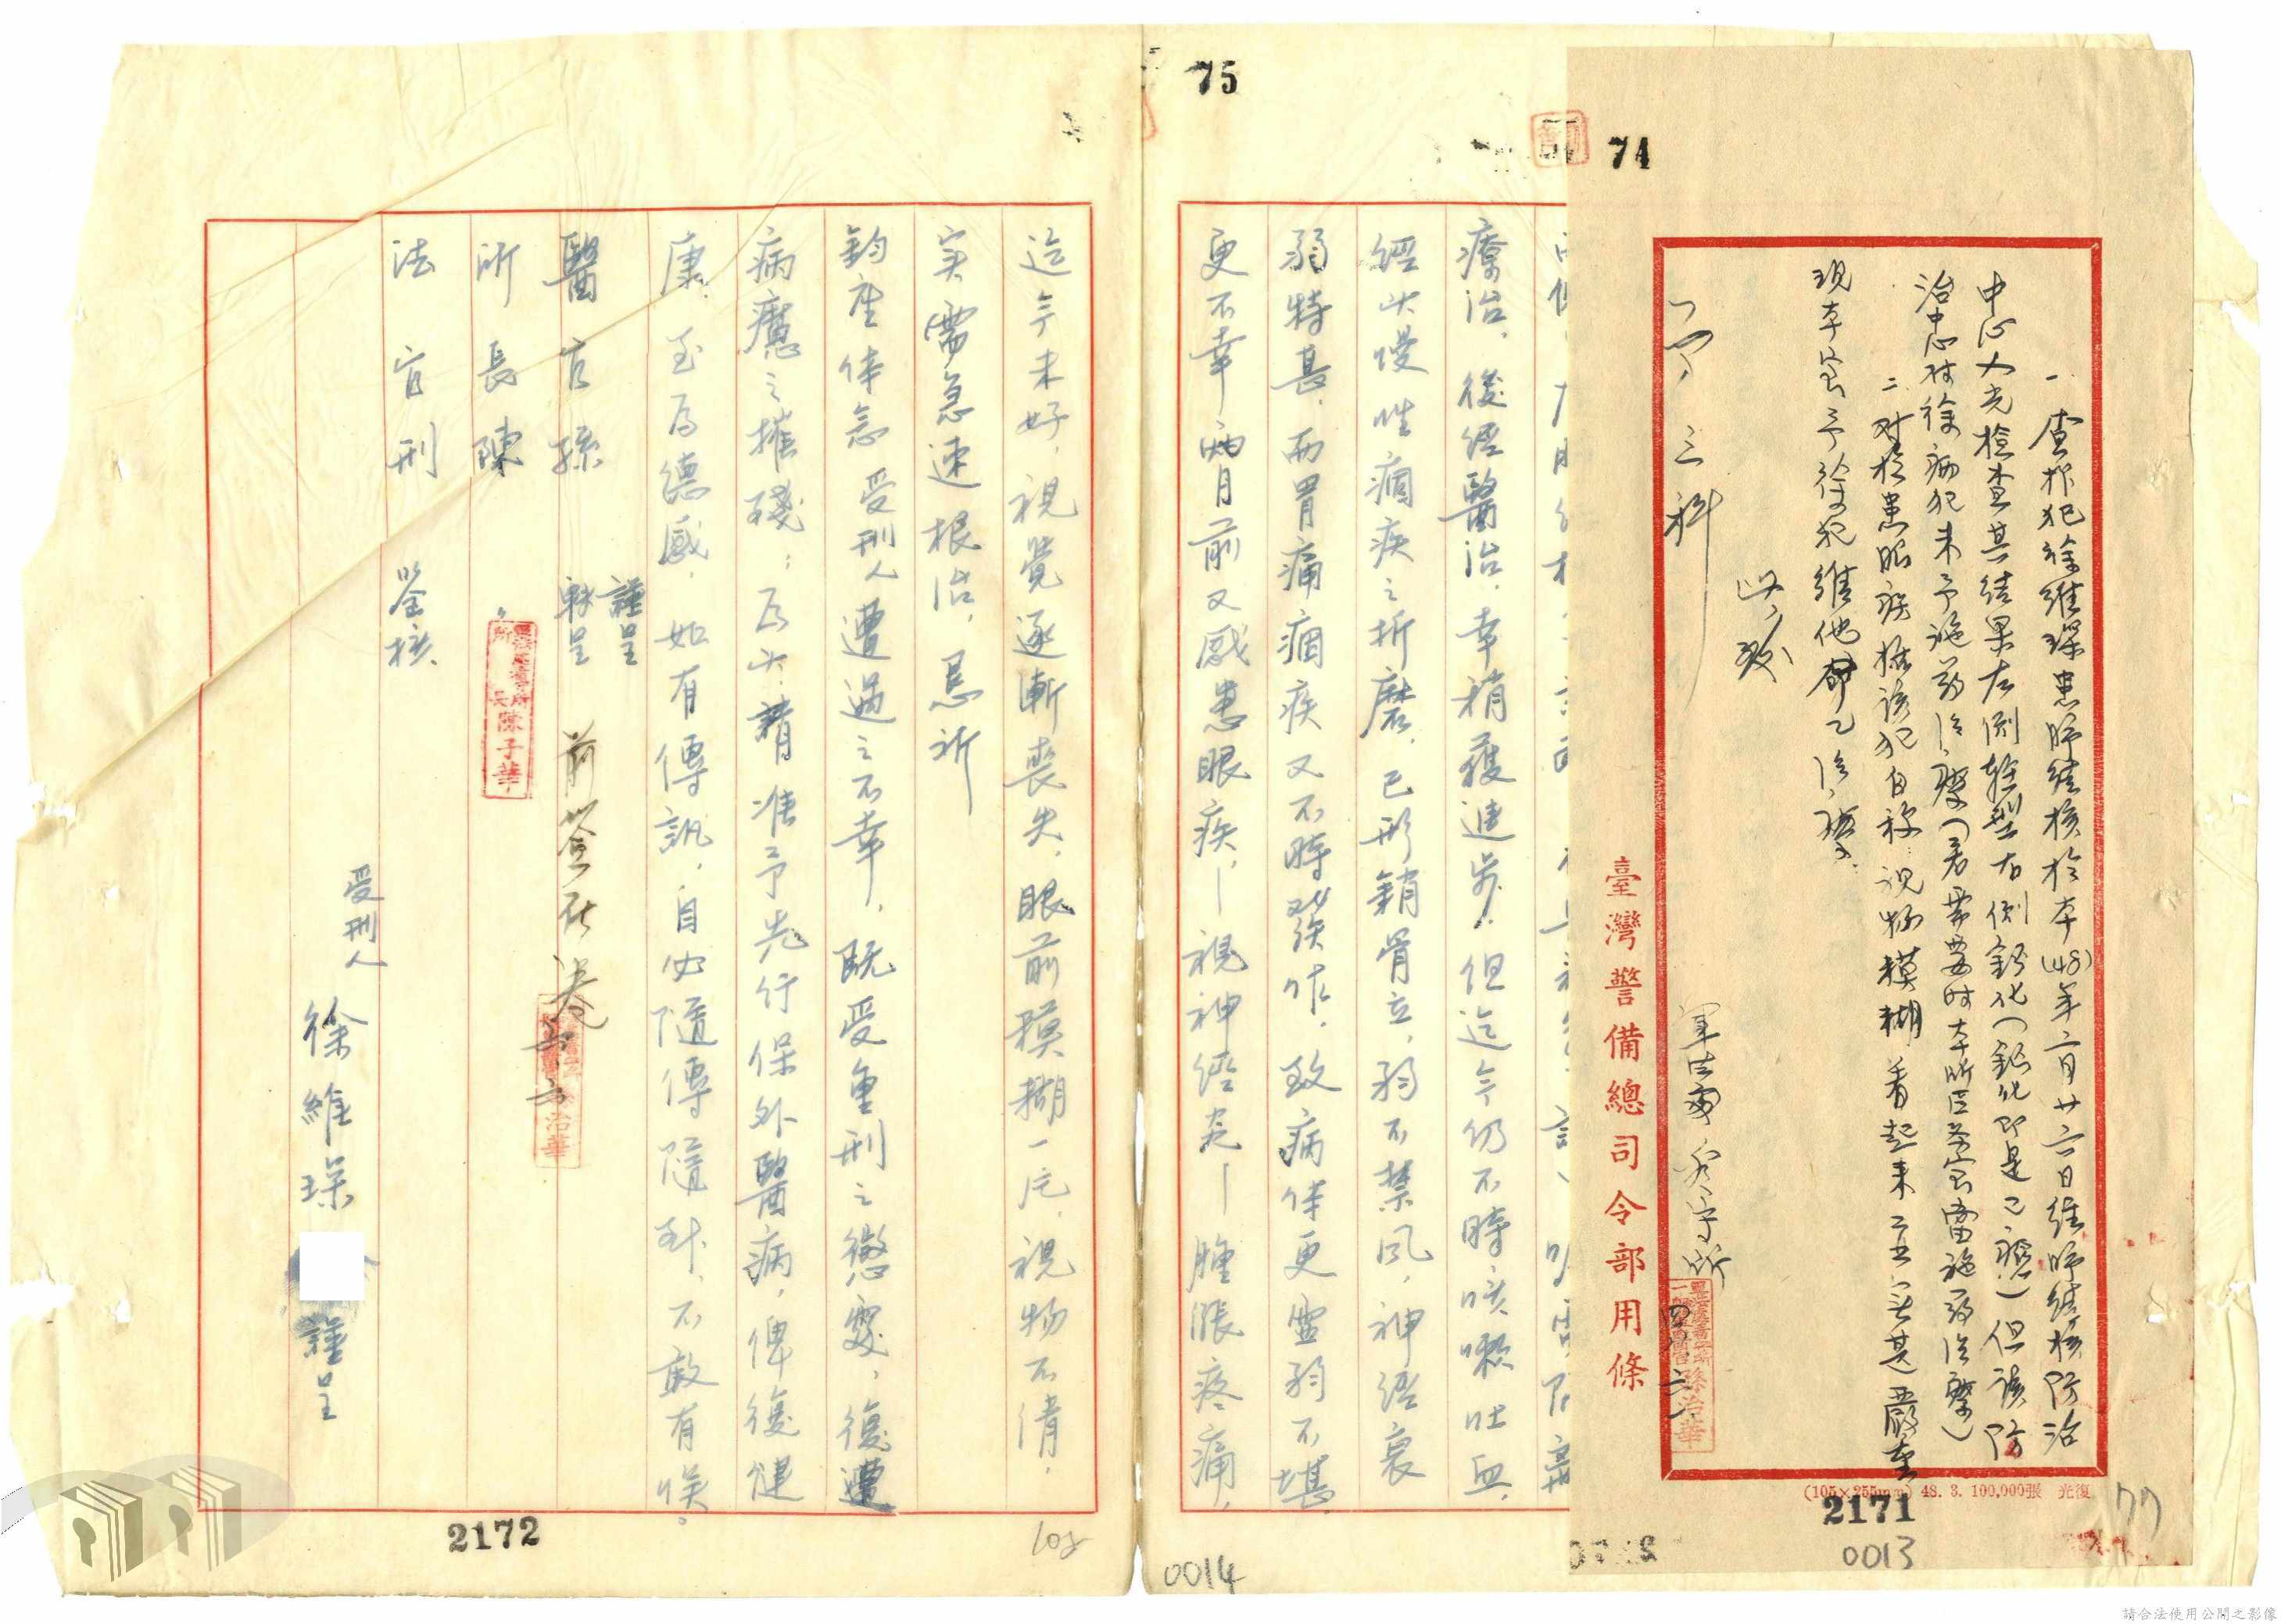 74
一、查押犯徐維琛患肺結核於本(48)年二月廿六日經肺結核防治
中心X光檢查其結果左側輕型右側鈣化(鈣化即是已癒)但該防
治中心对徐病犯未予施葯治療(若需要时本所医务室當施葯治療)
二、对於患眼疾據該犯自称視物模糊看起來並無甚嚴重
現本室予徐犯維他命乙治療
此致
三科
軍法處看守所
孫治華
臺灣警備總司令部用條
(105×255mm) 48. 3. 100,000張 光復
2171
0013
77
75
療治,後經醫治,幸稍獲進步,但迄今仍不時咳嗽吐血,
經此慢性痼疾之折磨,已形銷骨立,弱不禁風,神經衰
弱特甚,而胃痛痼疾又不時發作,致病体更靈弱不堪,
更不幸兩月前又感患眼疾,—視神經炎—腫脹疼痛,
0014
迄今未好,視覺逐漸喪失,眼前模糊一片,視物不清,
实需急速根治,懇祈
鈞座体念 受刑人遭遇之不幸,既受重刑之懲處,復遭
病魔之摧殘;为此請准予先行保外醫病,俾復健
康,至為德感,如有傳訊,自必隨傳隨到,不敢有悮。
謹呈
醫官孫 轉呈
前簽在卷
治華
所長陳
陳子華
法官刑 鉴核
受刑人 徐維琛 謹呈
2172
105
請合法使用公開之影像